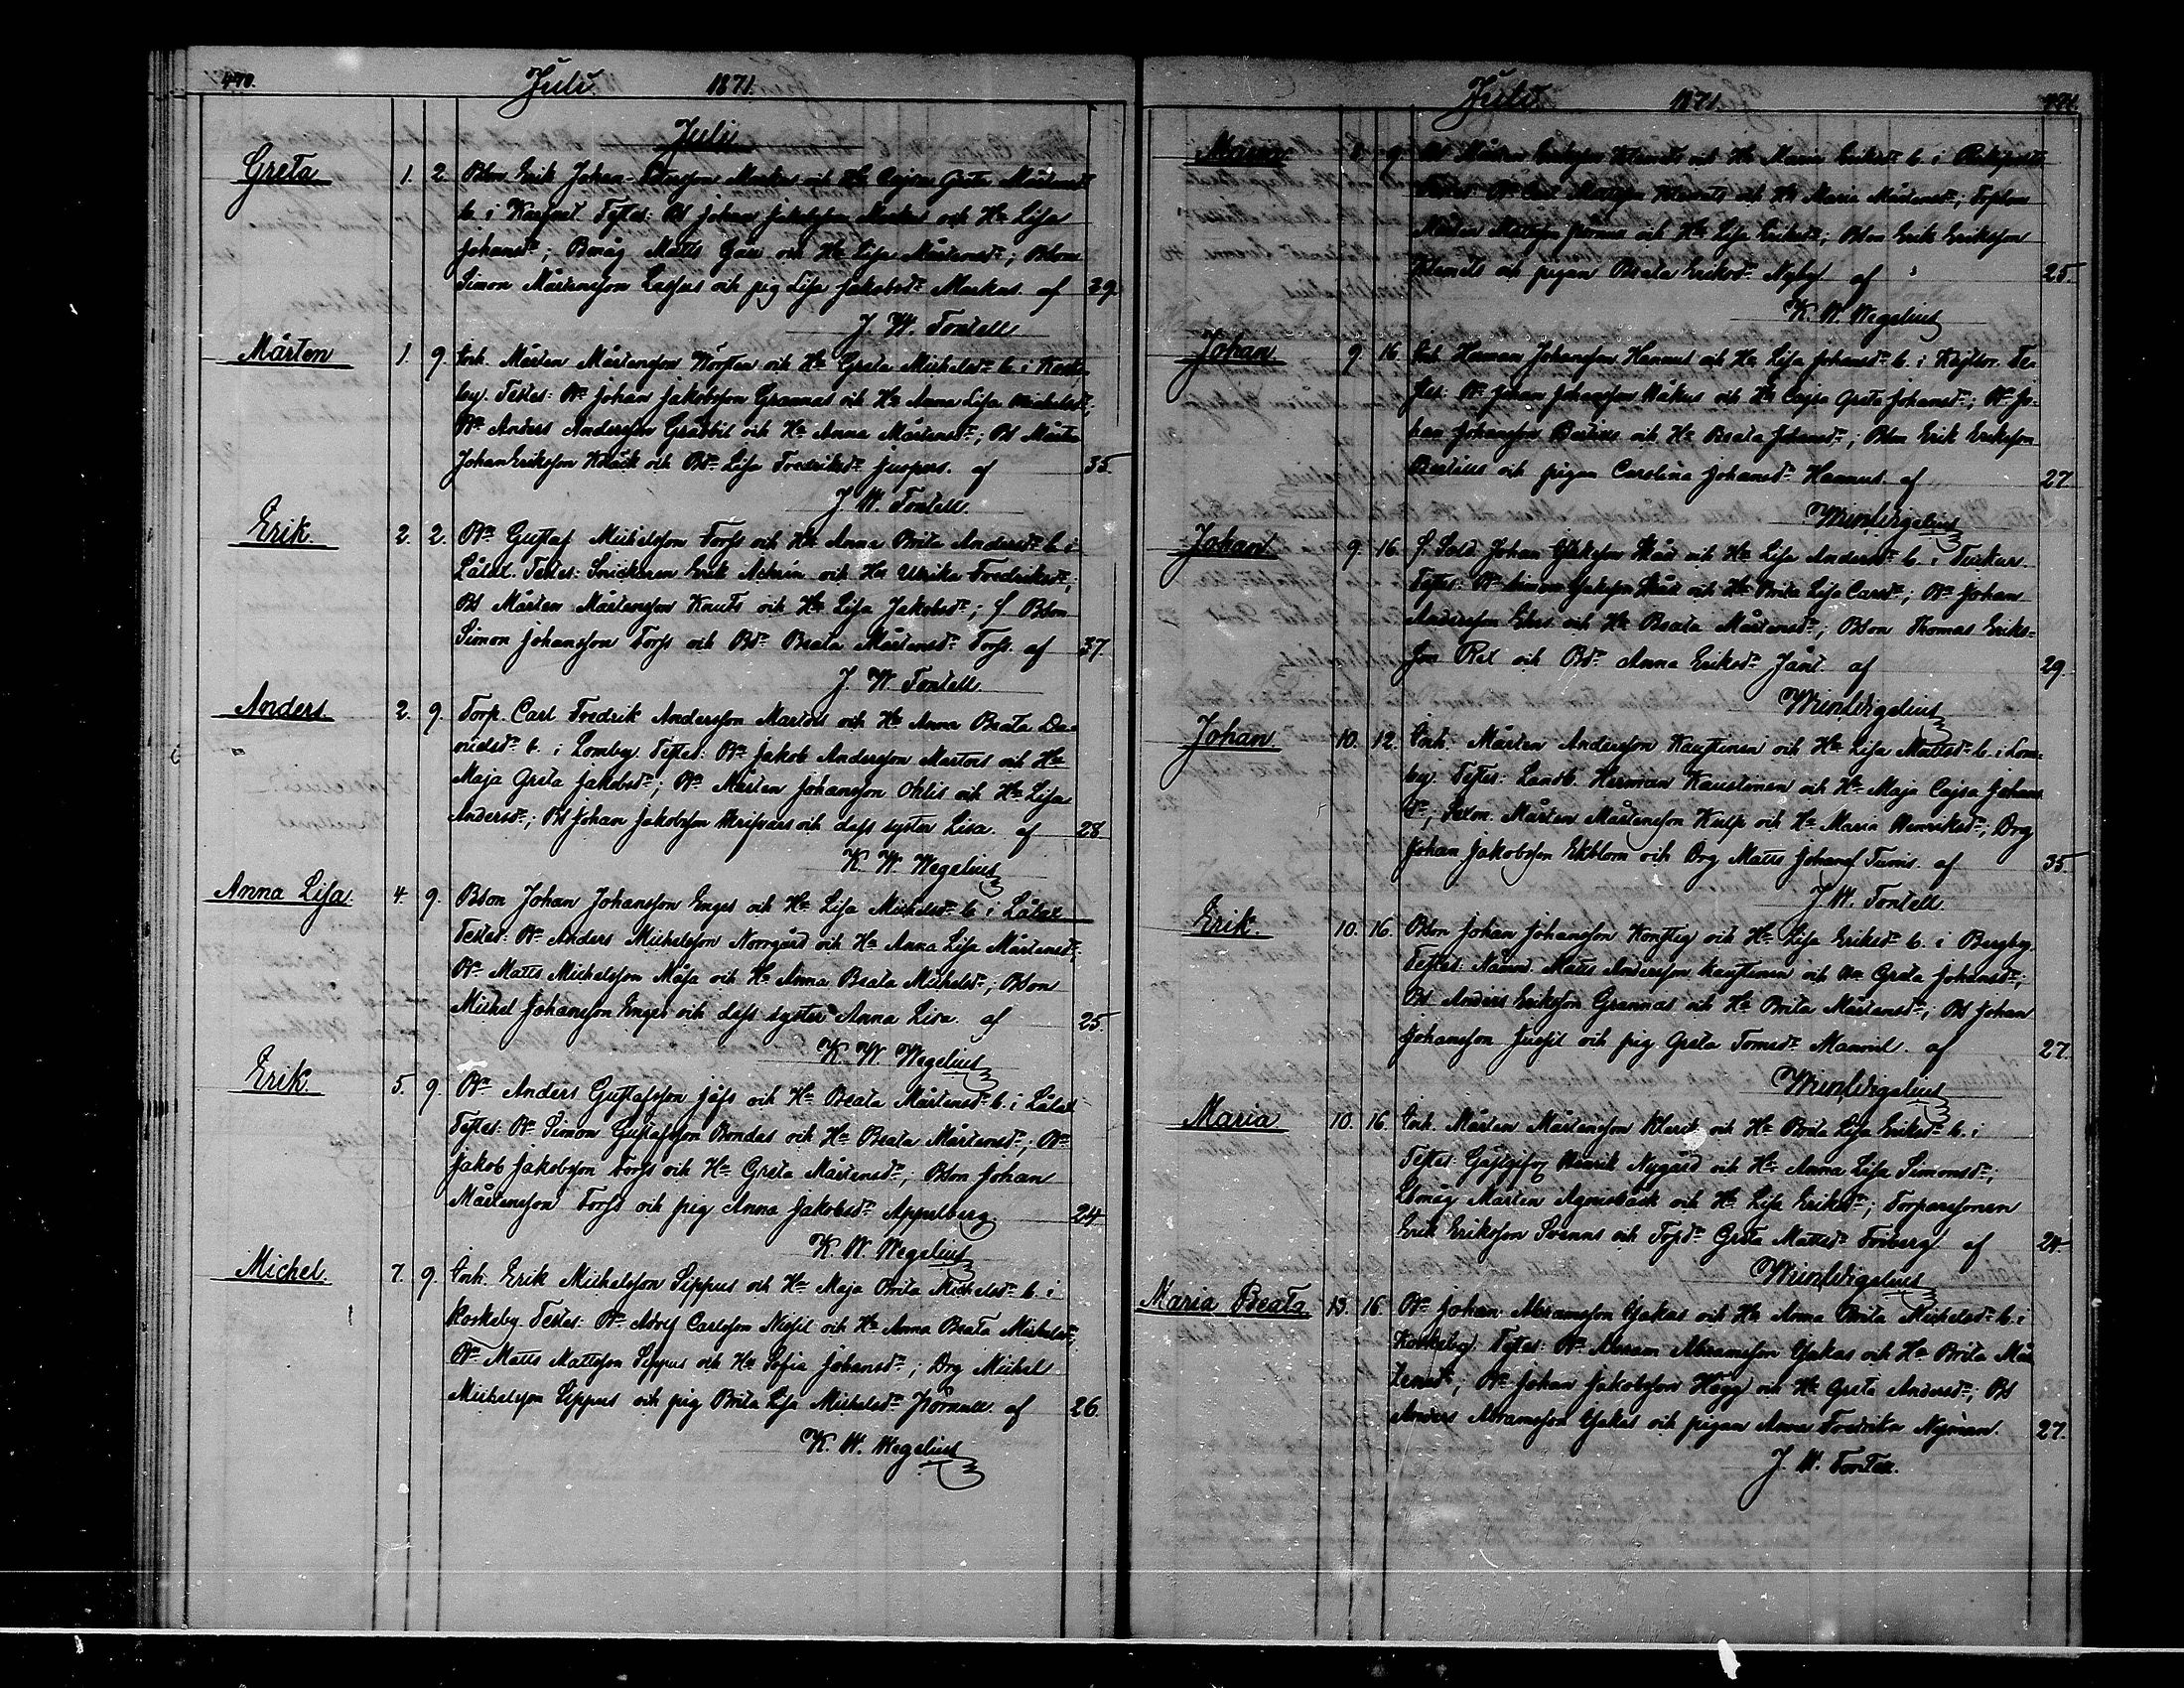 470. Juli 1871.
Juli
Greta 1. 2. Bson Erik Johan Markus och Hu Cajsa Greta Mårtensdr
b. i Karfsor Testes: Bd Johan Jakobsson Markus och Hu Lisa
Johansdr; Bmåg Matts och Hu Lisa Mårtensdr; Bson
Simon Mårtensson Lassus och pig Lisa Jakobsdr Markus. af 29.
J. W. Fontell
Mårten 1. 9. Inh. Mårten Mårtensson och Hu Greta Michelsdr b. i
by. Testes: Bn Johan Jakobsson Grannas och Hu Anna Lisa Michelsdr;
Bn Anders Andersson Grabbil och Hu Anna Mårtensdr; Bd
Johan Eriksson Knäck och Bdr Lisa Fredriksdr Juspers. af 35.
J. W. Fontell.
Erik. 2. 2. Bn Gustaf Michelsson Forss och Hu Anna Brita Andersdr b. i
Lålax. Testes: Snickaren Erik Achrén och Hu Ulrika Fredriksdr;
Bd Mårten Mårtensson Knuts och Hu Lisa Jakobsdr; f Bson
Simon Johansson Forss och Bdr Beata Mårtensdr Forss. af 37
J. W. Fontell.
Anders. 2. 9. Torp. Carl Fredrik Andersson Martois och Hu Anna Beata Da-
nielsdr b. i Lomby. Testes: Bn Jakob Andersson Martois och Hu
Maja Greta Jakobsdr; Bn Mårten Johansson Ohlis och Hu Lisa
Andersdr; Bd Johan Jakobsson och dess syster Lisa. af 28
K. W. Wegelius
Anna Lisa. 4. 9. Bson Johan Johansson Enges och Hu Lisa Michelsdr b. i Lålax
Testes: Bn Anders Michelsson Norrgård och Hu Anna Lisa Mårtensdr;
Bn Matts Michelsson Måsa och Hu Anna Beata Michelsdr; Bson
Michel Johansson Enges och dess syster Anna Lisa. af 25
K. W. Wegelius
Erik. 5. 9. Bn Anders Gustafsson Jåfs och Hu Beata Mårtensdr b. i Lålax
Testes: Bn Simon Gustafsson Bondas och Hu Beata Mårtensdr; Bn
Jakob Jakobsson Forss och Hu Greta Mårtensdr; Bson Johan
Mårtensson Forss och pig Anna Jakobsdr Appelberg. 24
K. W. Wegelius
Michel. 7. 9. Inh. Erik Michelsson Sippus och Hu Maja Brita Michelsdr b. i
Koskeby. Testes: Bn Adolf Carlsson Nissil och Hu Anna Beata Michelsdr;
Bn Matts Mattsson Sippus och Hu Sofia Johansdr; Drg Michel
Michelsson Sippus och pig Brita Lisa Michelsdr af 26.
K. W. Wegelius
Juli 1871. 471.
9. Bd Mårten Eriksson Klemets och Hu Maria Eriksdr b. i
Testes: Bn Carl Klemets och Hu Maria Mårtensdr;
Mårten Mattsson och Hu Lisa Eriksdr; Bson Erik Eriksson
Klemets och pigan Beata Eriksdr Nyby af 25.
K. W. Wegelius
Johan. 9. 16. Inh. Herman Johansson Hannus och Hu Lisa Johansdr b. i Te-
stes: Bn Johan Johansson och Hu Cajsa Greta Johansdr; Bn Jo-
han Johansson Bertius och Hu Beata Johansdr; Bson Erik Eriksson
Bertius och pigan Carolina Johansdr Hannus. af 27
Wegelius
Johan 9. 16. f Sold. Johan och Hu Lisa Andersdr b. i Tuckur.
Testes: Bn Simon och Hu Brita Lisa Carlsdr; Bn Johan
Andersson och Hu Beata Mårtensdr; Bson Thomas Eriks-
son Rel och Bdr Anna Eriksdr Jånt. af 29.
Wegelius
Johan 10. 12. Inh. Mårten Andersson Kaustinen och Hu Lisa Mattsdr b. i Lom-
by. Testes: Landb. Herman Kaustinen och Hu Maja Cajsa Johans-
dr; Sexm. Mårten Mårtensson Kulp och Hu Maria Henriksdr; Drg
Johan Jakobsson Ekblom och Drg Matts Johansf Tunis. af 35.
J. W. Fontell.
Erik. 10. 16. Bson Johan Johansson Konstig och Hu Lisa Eriksdr b. i Bergby.
Testes: Nämnd. Matts Andersson Kaustinen och Hu Greta Johansdr;
Bd Anders Eriksson Grannas och Hu Brita Mårtensdr; Bd Johan
Johansson Jussil och pig Greta Tomasdr Mannil. af 27.
Wegelius
Maria 10. 16. Inh. Mårten Mårtensson och Hu Brita Lisa Eriksdr b. i
Testes: Gästgifv Henrik Nygård och Hu Anna Lisa Simonsdr;
Lbmåg Mårten Agnisbäck och Hu Lisa Eriksdr; Torparesonen
Erik Eriksson Svenns och Torpdr Greta Mattsdr Friberg af 24.
Wegelius
Maria Beata 15. 16. Bn Johan Abramsson Gakas och Hu Anna Brita Michelsdr b. i
Koskeby. Testes: Bn Abram Abramsson Gakas och Hu Brita Mår-
tensdr; Bn Johan Jakobsson Hägg och Hu Greta Andersdr; Bd
Anders Abramsson Gakas och pigan Anna Fredrika Nyman. 27.
J. W. Fontell.